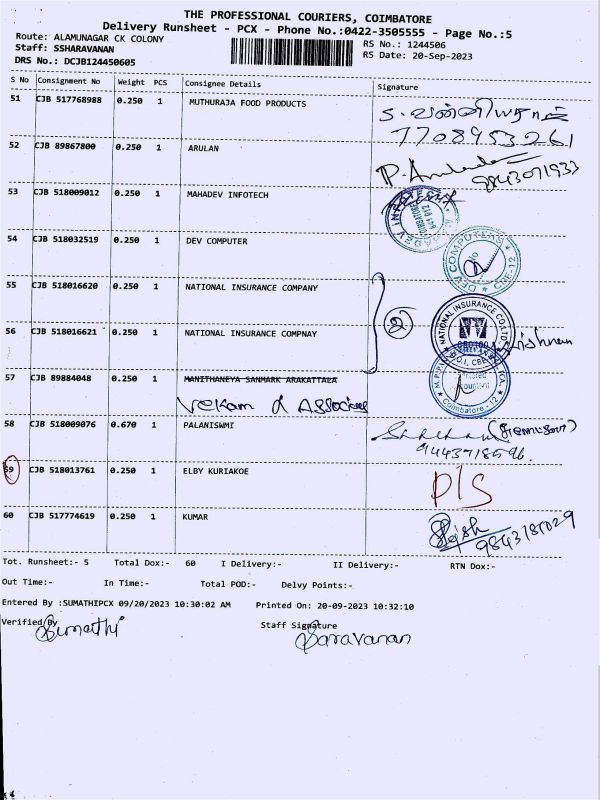 THE PROFESSIONAL COURIERS, COIMBATORE
Delivery Runsheet - PCX - Phone No.:0422-3505555 - Page No.:5
Route: ALAMUNAGAR CK COLONY
Staff: SSHARAVANAN
DRS No.: DCJB124450605
RS No.: 1244506
RS Date: 20-Sep-2023
S No Consignment No Weight PCS Consignee Details Signature
51 CJB 517768988 0.250 1 MUTHURAJA FOOD PRODUCTS
7708953261
52 CJB 89867800 0.250 1 ARULAN
9843071933
53 CJB 518009012 0.250 1 MAHADEV INFOTECH
54 CJB 518032519 0.250 1 DEV COMPUTER
DEV COMPUTERS
CNE-12
55 CJB 518016620 0.250 1 NATIONAL INSURANCE COMPANY
2
NATIONAL INSURANCE CO.LTD.
56 CJB 518016621 0.250 1 NATIONAL INSURANCE COMPNAY
57 CJB 89884048 0.250 1 MANITHANEYA SANMARK ARAKATTALA
Vekam & Associates
Coimbatore - 12
58 CJB 518009076 0.670 1 PALANISWMI
9443718596
59 CJB 518013761 0.250 1 ELBY KURIAKOE
D/S
60 CJB 517774619 0.250 1 KUMAR
Tot. Runsheet:- 5 Total Dox:- 60 I Delivery:- II Delivery:- RTN Dox:-
Out Time:- In Time:- Total POD:- Delvy Points:-
Entered By :SUMATHIPCX 09/20/2023 10:30:02 AM Printed On: 20-09-2023 10:32:10
Verified By Staff Signature
Sumathi Saravanan